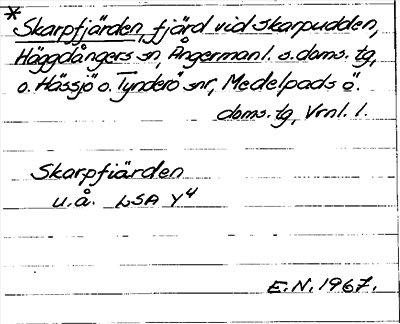 * Skarpfjärden, fjärd vid Skarpudden,
Häggdångers sn, Ångermanl. s. doms. tg,
o. Hässjö o. Tynderö snr, Medelpads ö.
doms. tg, Vrnl. l.
Skarpfiärden
u.å. LSA Y4
E.N. 1967.